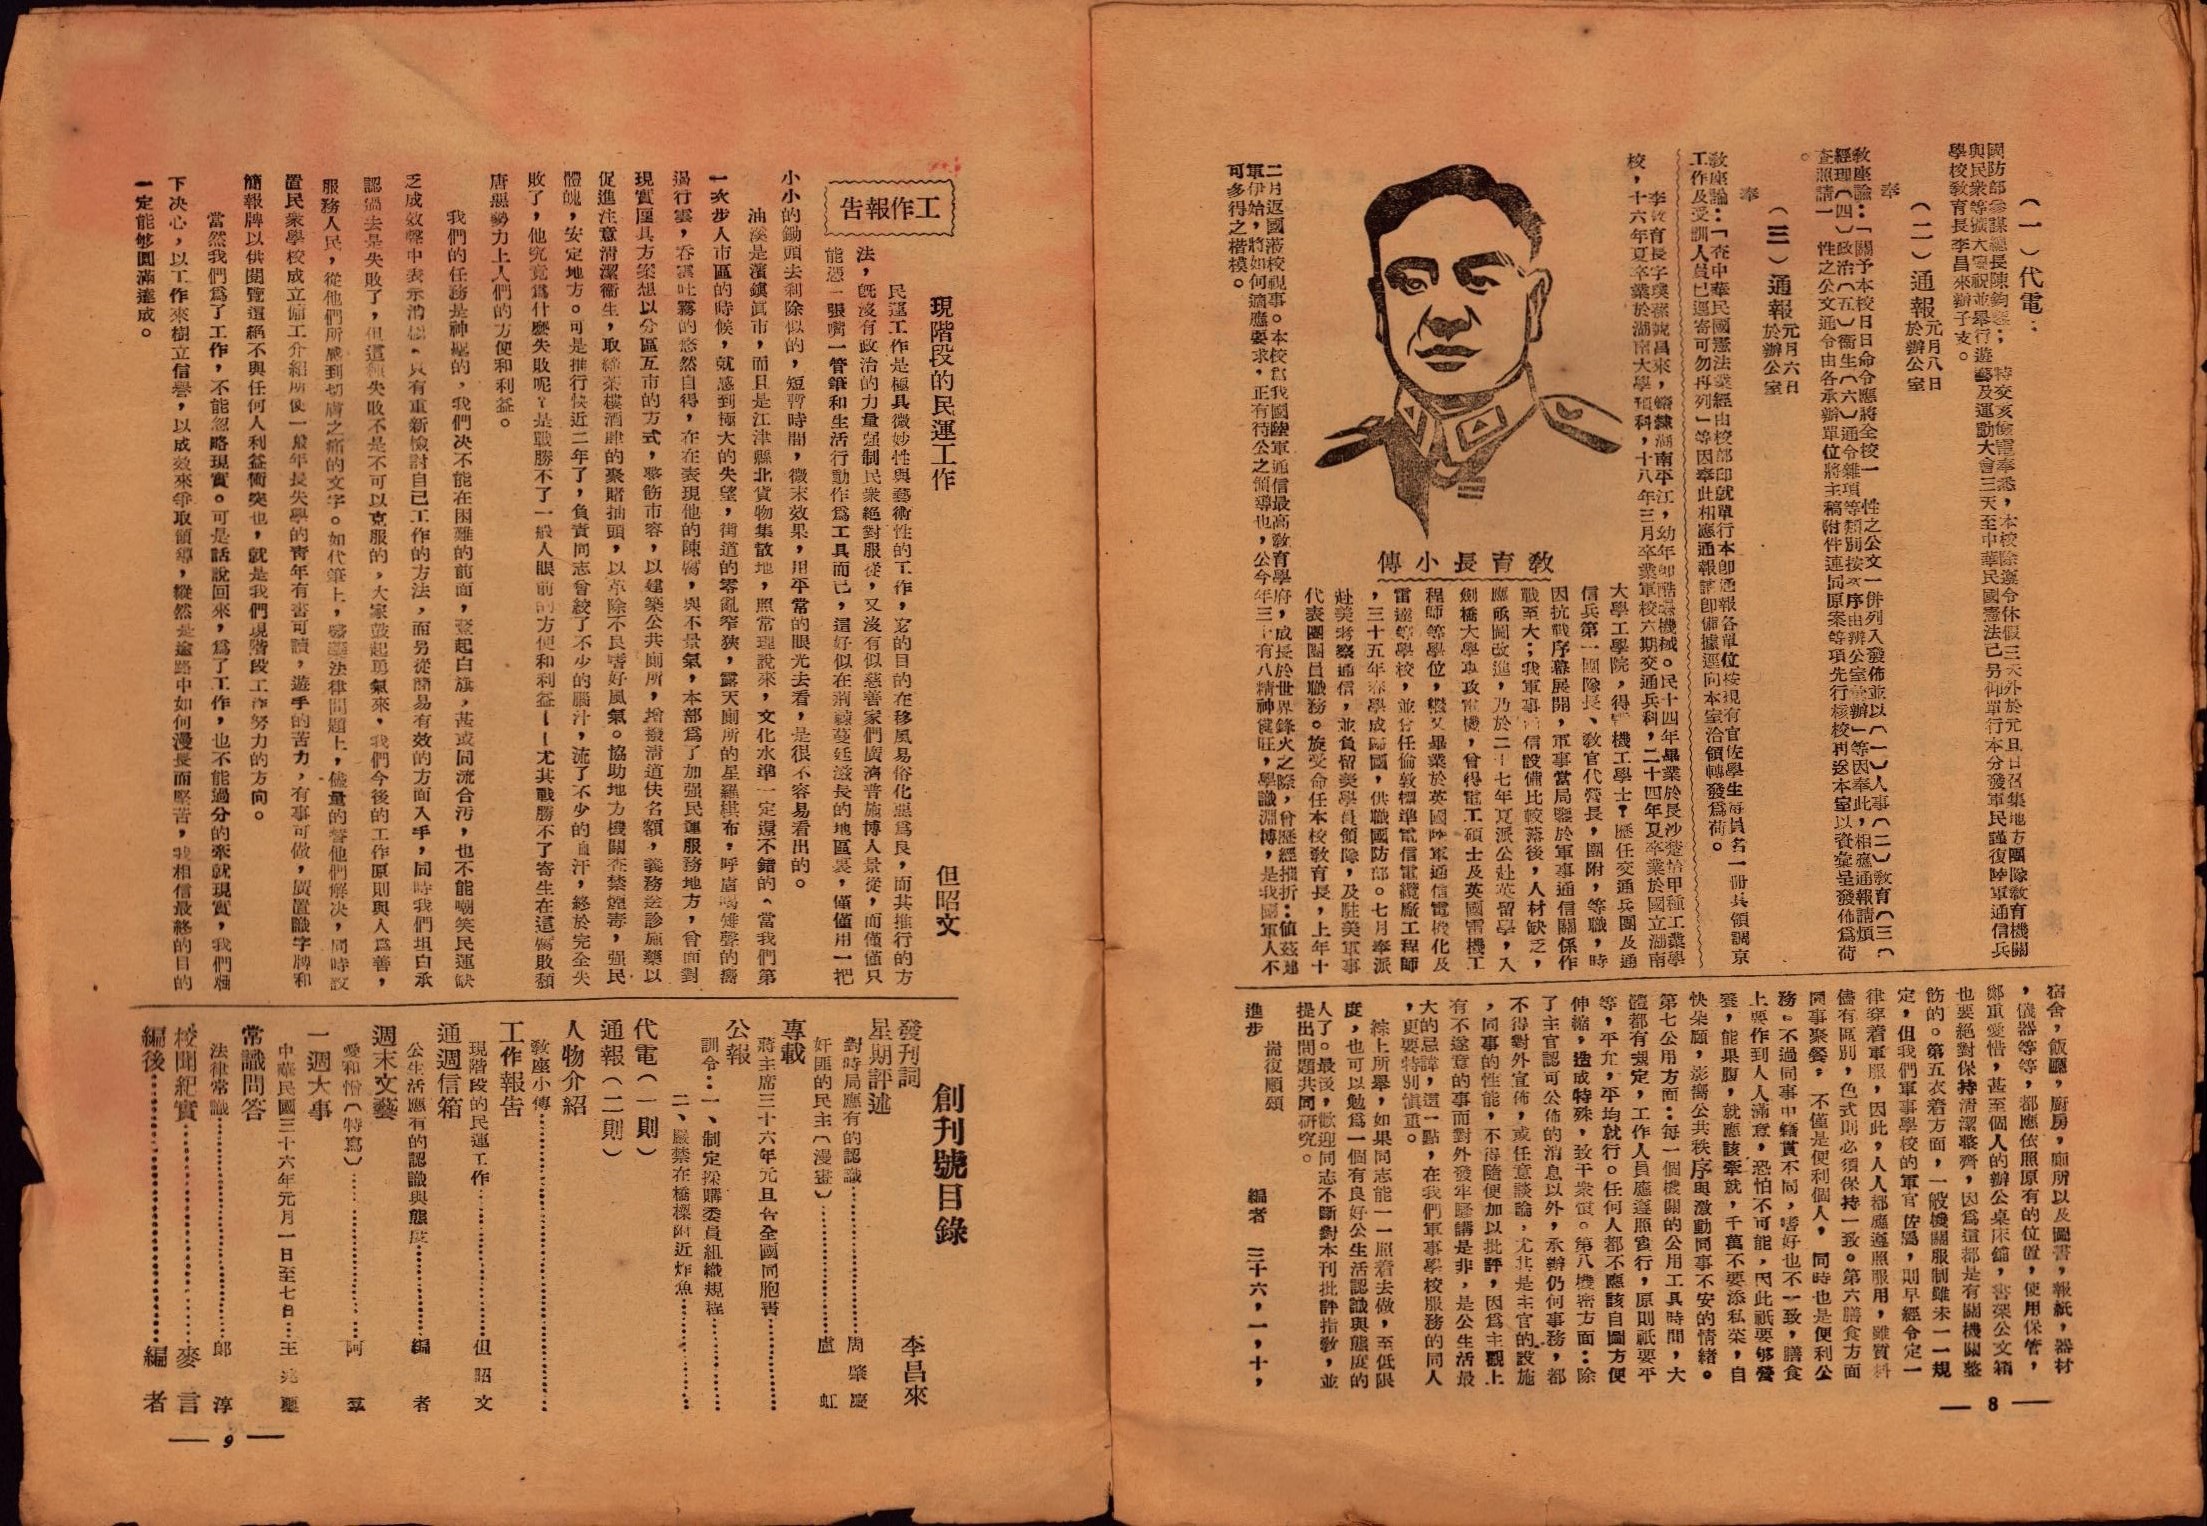 （一）代電：
國防部參謀總長陳鈞鑒：特交亥儉電奉悉，本校除遵令休假三天外於元旦日召集地方團隊教育機關
與民衆等擴大慶祝並舉行遊藝及運動大會三天至中華民國憲法已另仰單行本分發軍民謹復陸軍通信兵
學校教育長李昌來辦子支。
（二）通報 元月八日於辦公室
奉
教座諭：「關予本校日日命令應將全校一性之公文一併列入發佈並以（一）人事（二）教育（三）
經理（四）政治（五）衞生（六）通令雜項等類別按次序由辦公室彙辦」等因奉此，相應通報請煩
查照請一性之公文通令由各承辦單位將主稿附件連同原案等項先行核校判送本室以資彙呈發佈爲荷
。
（三）通報 元月六日於辦公室
奉
教座諭：「查中華民國憲法業經由校部印就單行本卽通報各單位按現有官佐學生每員名一冊具領調京
工作及受訓人員已逕寄可勿再列」等因奉此相應通報請卽備據逕向本室洽領轉發爲荷。
教育長小傳
李教育長字璞蓀號昌來，籍隸湖南平江，幼年卽酷嗜機械。民十四年畢業於長沙楚怡甲種工業學
校，十六年夏卒業於湖南大學預科，十八年三月卒業軍校六期交通兵科，二十四年夏卒業於國立湖南
大學工學院，得電機工學士。歷任交通兵團及通
信兵第一團隊長、教官代營長，團附，等職，時
因抗戰序幕展開，軍事當局鑒於軍事通信關係作
戰至大；我軍事通信設備比較落後，人材缺乏，
應亟圖改進，乃於二十七年夏派公赴英留學，入
劍橋大學專攻電機，曾得電工碩士及英國雷機工
程師等學位，繼又畢業於英國陸軍通信電機化及
雷達等學校，並曾任倫敦標準電信電纜廠工程師
，三十五年春學成歸國，供職國防部。七月奉派
赴美考察通信，並負留美學員領隊，及駐美軍事
代表團團員職務。旋受命任本校教育長，上年十
二月返國蒞校視事。本校爲我國陸軍通信最高教育學府，成長於世界鋒火之際，曾歷經摧折：値茲建
軍伊始，將如何適應要求，正有待公之領導也，公今年三十有八精神健旺，學識淵博，是我國軍人不
可多得之楷模。
宿舍，飯廳，廚房，廁所以及圖書，報紙，器材
，儀器等等，都應依照原有的位置，使用保管，
鄭重愛惜，甚至個人的辦公桌床舖，書架公文箱
也要絕對保持清潔整齊，因爲這都是有關機關整
飭的。第五衣着方面，一般機關服制雖未一一規
定，但我們軍事學校的軍官佐屬，則早經令定一
律穿着軍服，因此，人人都應遵照服用，雖質料
儘有區別，色式則必須保持一致。第六膳食方面
同事聚餐，不僅是便利個人，同時也是便利公
務。不過同事中籍貫不同，嗜好也不一致，膳食
上要作到人人滿意，恐怕不可能，因此祇要够營
養，能果腹，就應該牽就，千萬不要添私菜，自
快朵頤，影響公共秩序與激動同事不安的情緒。
第七公用方面：每一個機關的公用工具時間，大
體都有規定，工作人員應遵照實行，原則祇要平
等，平允，平均就行。任何人都不應該自圖方便
伸縮，造成特殊，致干衆怨。第八機密方面：除
了主官認可公佈的消息以外，承辦仍何事務，都
不得對外宣佈，或任意談論，尤其是主官的設施
，同事的性能，不得隨便加以批評，因爲主觀上
有不遂意的事而對外發牢騷講是非，是公生活最
大的忌諱，這一點，在我們軍事學校服務的同人
，更要特別愼重。
綜上所舉，如果同志能一一照着去做，至低限
度，也可以勉爲一個有良好公生活認識與態度的
人了。最後，歡迎同志不斷對本刊批評指教，並
提出問題共同研究。
進步　耑復順頌
編者　三十六，一，十，
— 8 —
工作報告
現階段的民運工作　但昭文
民運工作是極具微妙性與藝術性的工作，它的目的在移風易俗化惡爲良，而其推行的方
法，旣沒有政治的力量强制民衆絕對服從，又沒有似慈善家們廣濟普施博人景從，而僅僅只
能憑一張嘴一管筆和生活行動作爲工具而已，這好似在荊棘蔓延滋長的地區裏，僅僅用一把
小小的鋤頭去剷除似的，短暫時間，微末效果，用平常的眼光去看，是很不容易看出的。
油溪是濱鎮眞市，而且是江津縣北貨物集散地，照常理說來，文化水準一定還不錯的、當我們第
一次步入市區的時候，就感到極大的失望，街道的零亂窄狹，露天廁所的星羅棋布，呼盧喝雉聲的響
遏行雲，吞雲吐霧的悠然自得，在在表現他的陳腐，與不景氣，本部爲了加强民運服務地方，曾面對
現實厘具方案想以分區互市的方式，整飭市容，以建築公共廁所，增撥清道伕名額，義務送診施藥以
促進注意清潔衞生，取締茶樓酒肆的聚賭抽頭，以革除不良嗜好風氣。協助地方機關查禁煙毒，强民
體魄，安定地方。可是推行快近二年了，負責同志曾絞了不少的腦汁，流了不少的血汗，終於完全失
敗了，他究竟爲什麼失敗呢？是戰勝不了一般人眼前的方便和利益——尤其戰勝不了寄生在這腐敗頹
唐惡勢力上人們的方便和利益。
我們的任務是神聖的，我們决不能在困難的前面，豎起白旗，甚或同流合汚，也不能嘲笑民運缺
乏成效聲中表示消極、只有重新檢討自己工作的方法，而另從簡易有效的方面入手，同時我們坦白承
認過去是失敗了，但這種失敗不是不可以克服的，大家鼓起勇氣來，我們今後的工作原則與人爲善，
服務人民，從他們所感到切膚之痛的文字。如代筆上，醫藥法律問題上，儘量的替他們解决，同時設
置民衆學校成立傭工介紹所使一般年長失學的靑年有書可讀，遊手的苦力，有事可做，廣置識字牌和
簡報牌以供閱覽這絕不與任何人利益衝突也，就是我們現階段工作努力的方向。
當然我們爲了工作，不能忽略現實。可是話說回來，爲了工作，也不能過分的牽就現實，我們
下决心，以工作來樹立信譽，以成效來爭取領導，縱然是途路中如何漫長而堅苦，我相信最終的目的
一定能够圓滿達成。
創刊號目錄
發刊詞　李昌來
星期評述
對時局應有的認識…………周肇慶
奸匪的民主（漫畫）…………盧　虹
專載
蔣主席三十六年元旦告全國同胞書…………
公報
訓令：一、制定採購委員組織規程…………
二、嚴禁在橋樑附近炸魚…………
代電（一則）
通報（二則）
人物介紹
教座小傳…………
工作報告
現階段的民運工作…………但昭文
通週信箱
公生活應有的認識與態度…………編　者
週末文藝
愛和憎（特寫）…………阿　羣
一週大事
中華民國三十六年元月一日至七日…王兆
常識問答
法律常識…………郎　淳
校聞紀實…………麥　言
編後…………編　者
— 9 —